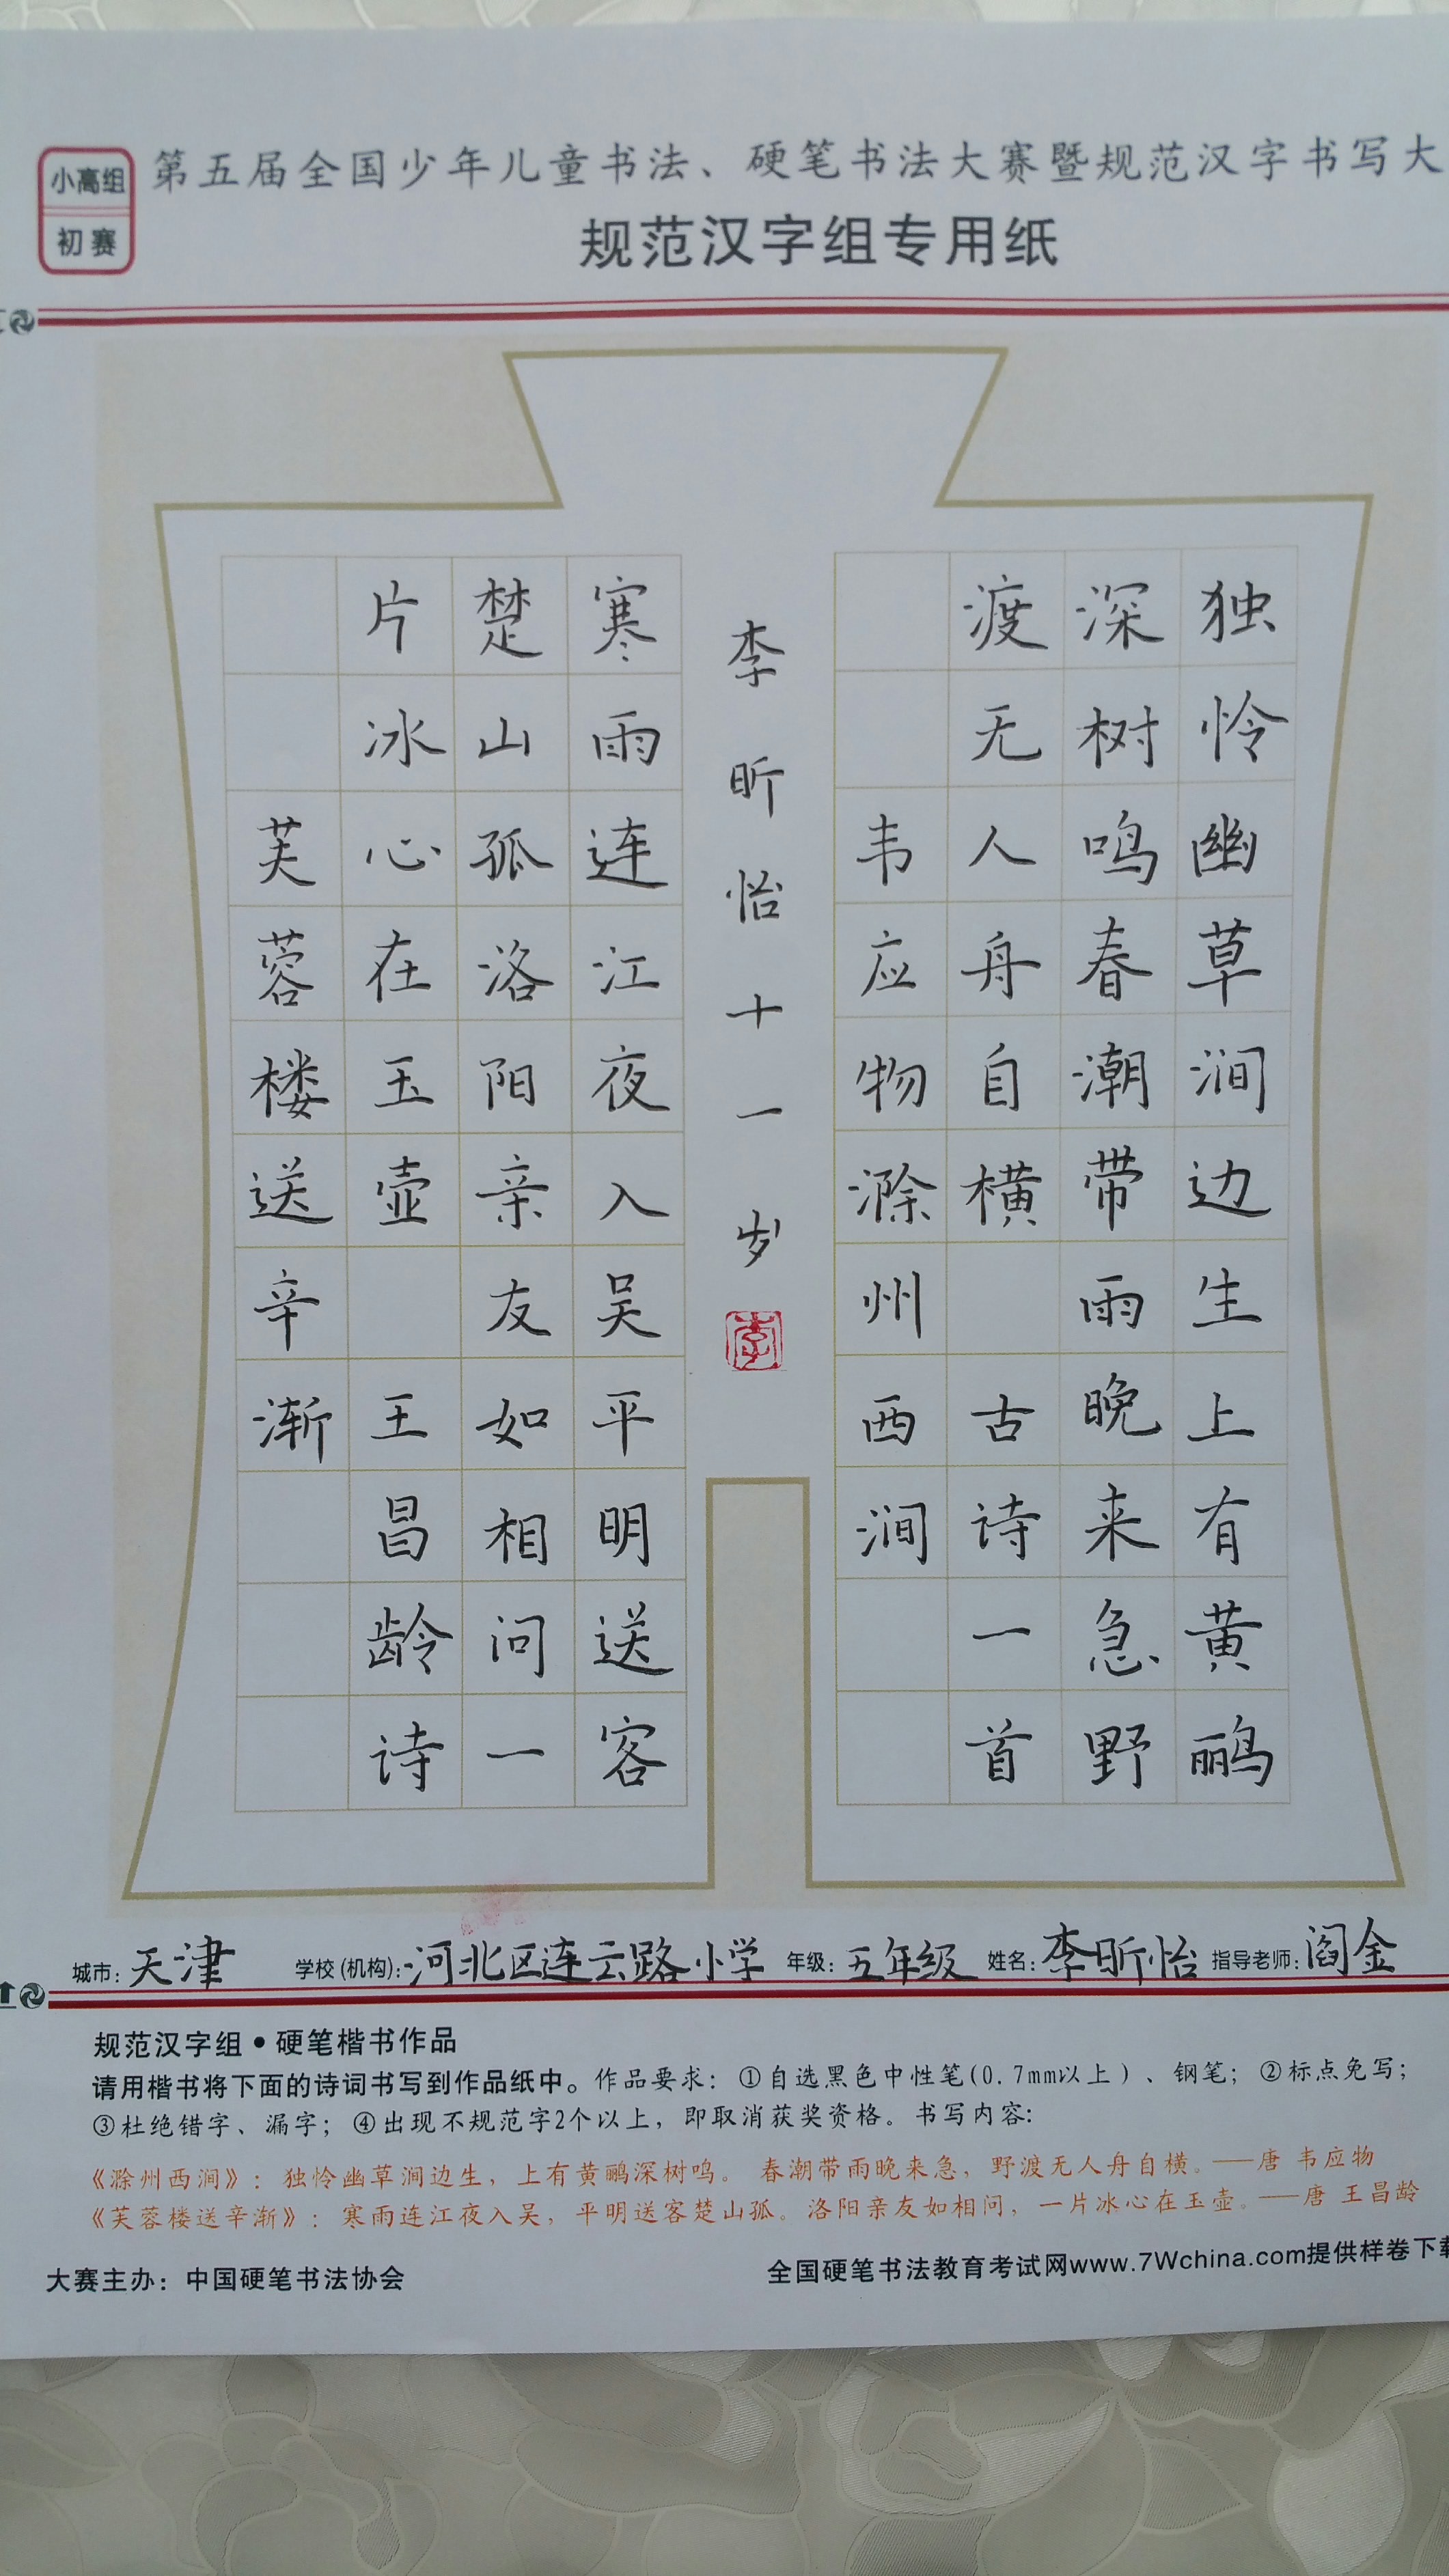 小高组
初赛
第五届全国少年儿童书法、硬笔书法大赛暨规范汉字书写大
规范汉字组专用纸
独怜幽草涧边生上有黄鹂
深树鸣春潮带雨晚来急野
渡无人舟自横 古诗一首
韦应物滁州西涧
李昕怡十一岁
李
寒雨连江夜入吴平明送客
楚山孤洛阳亲友如相问一
片冰心在玉壶 王昌龄诗
芙蓉楼送辛渐
城市：天津 学校(机构)：河北区连云路小学 年级：五年级 姓名：李昕怡 指导老师：阎金
规范汉字组•硬笔楷书作品
请用楷书将下面的诗词书写到作品纸中。作品要求：①自选黑色中性笔(0.7mm以上）、钢笔；②标点免写；
③杜绝错字、漏字；④出现不规范字2个以上，即取消获奖资格。书写内容：
《滁州西涧》：独怜幽草涧边生，上有黄鹂深树鸣。春潮带雨晚来急，野渡无人舟自横。——唐 韦应物
《芙蓉楼送辛渐》：寒雨连江夜入吴，平明送客楚山孤。洛阳亲友如相问，一片冰心在玉壶。——唐 王昌龄
大赛主办：中国硬笔书法协会
全国硬笔书法教育考试网www.7Wchina.com提供样卷下载